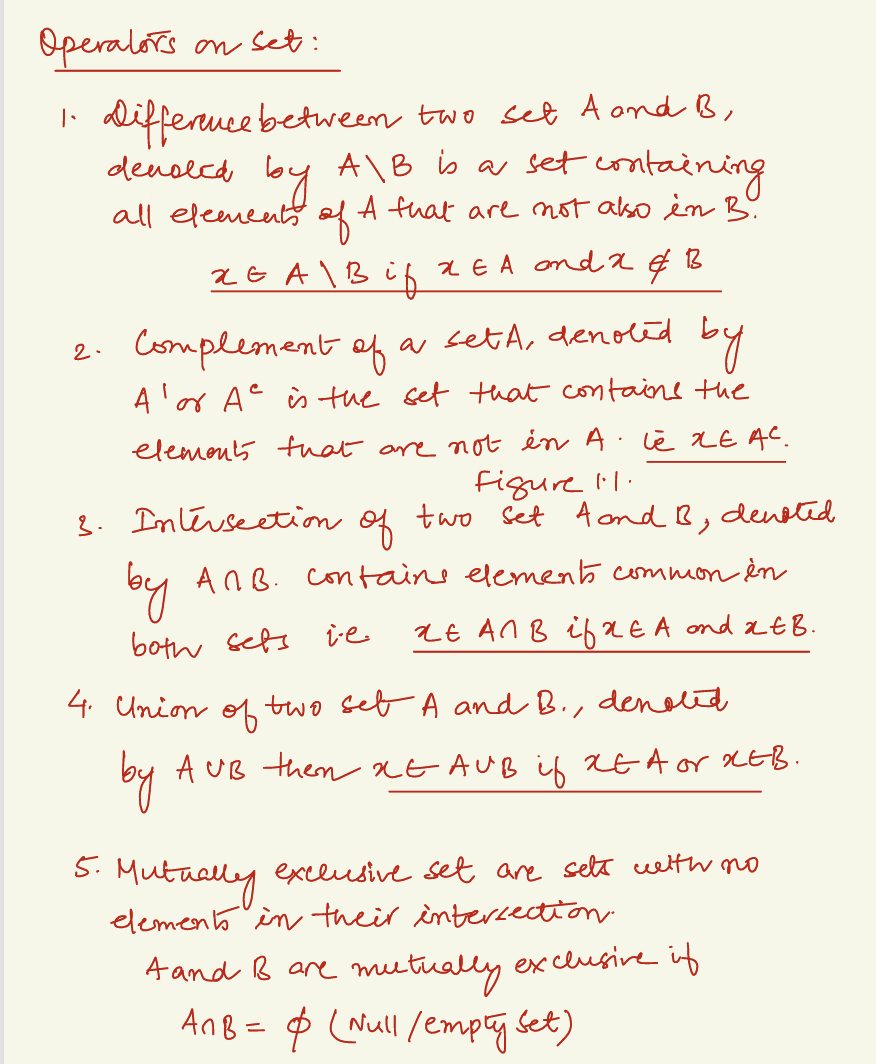 Operators on set:
1. Difference between two set A and B,
denoted by A \ B is a set containing
all elements of A that are not also in B.
x ∈ A \ B if x ∈ A and x ∉ B
2. Complement of a set A, denoted by
A' or Aᶜ is the set that contains the
elements that are not in A. ie x ∈ Aᶜ.
Figure 1.1.
3. Intersection of two set A and B, denoted
by A ∩ B. contains elements common in
both sets i.e. x ∈ A ∩ B if x ∈ A and x ∈ B.
4. Union of two set A and B., denoted
by A ∪ B then x ∈ A ∪ B if x ∈ A or x ∈ B.
5. Mutually exclusive set are sets with no
elements in their intersection.
A and B are mutually exclusive if
A ∩ B = ϕ (Null/empty set)